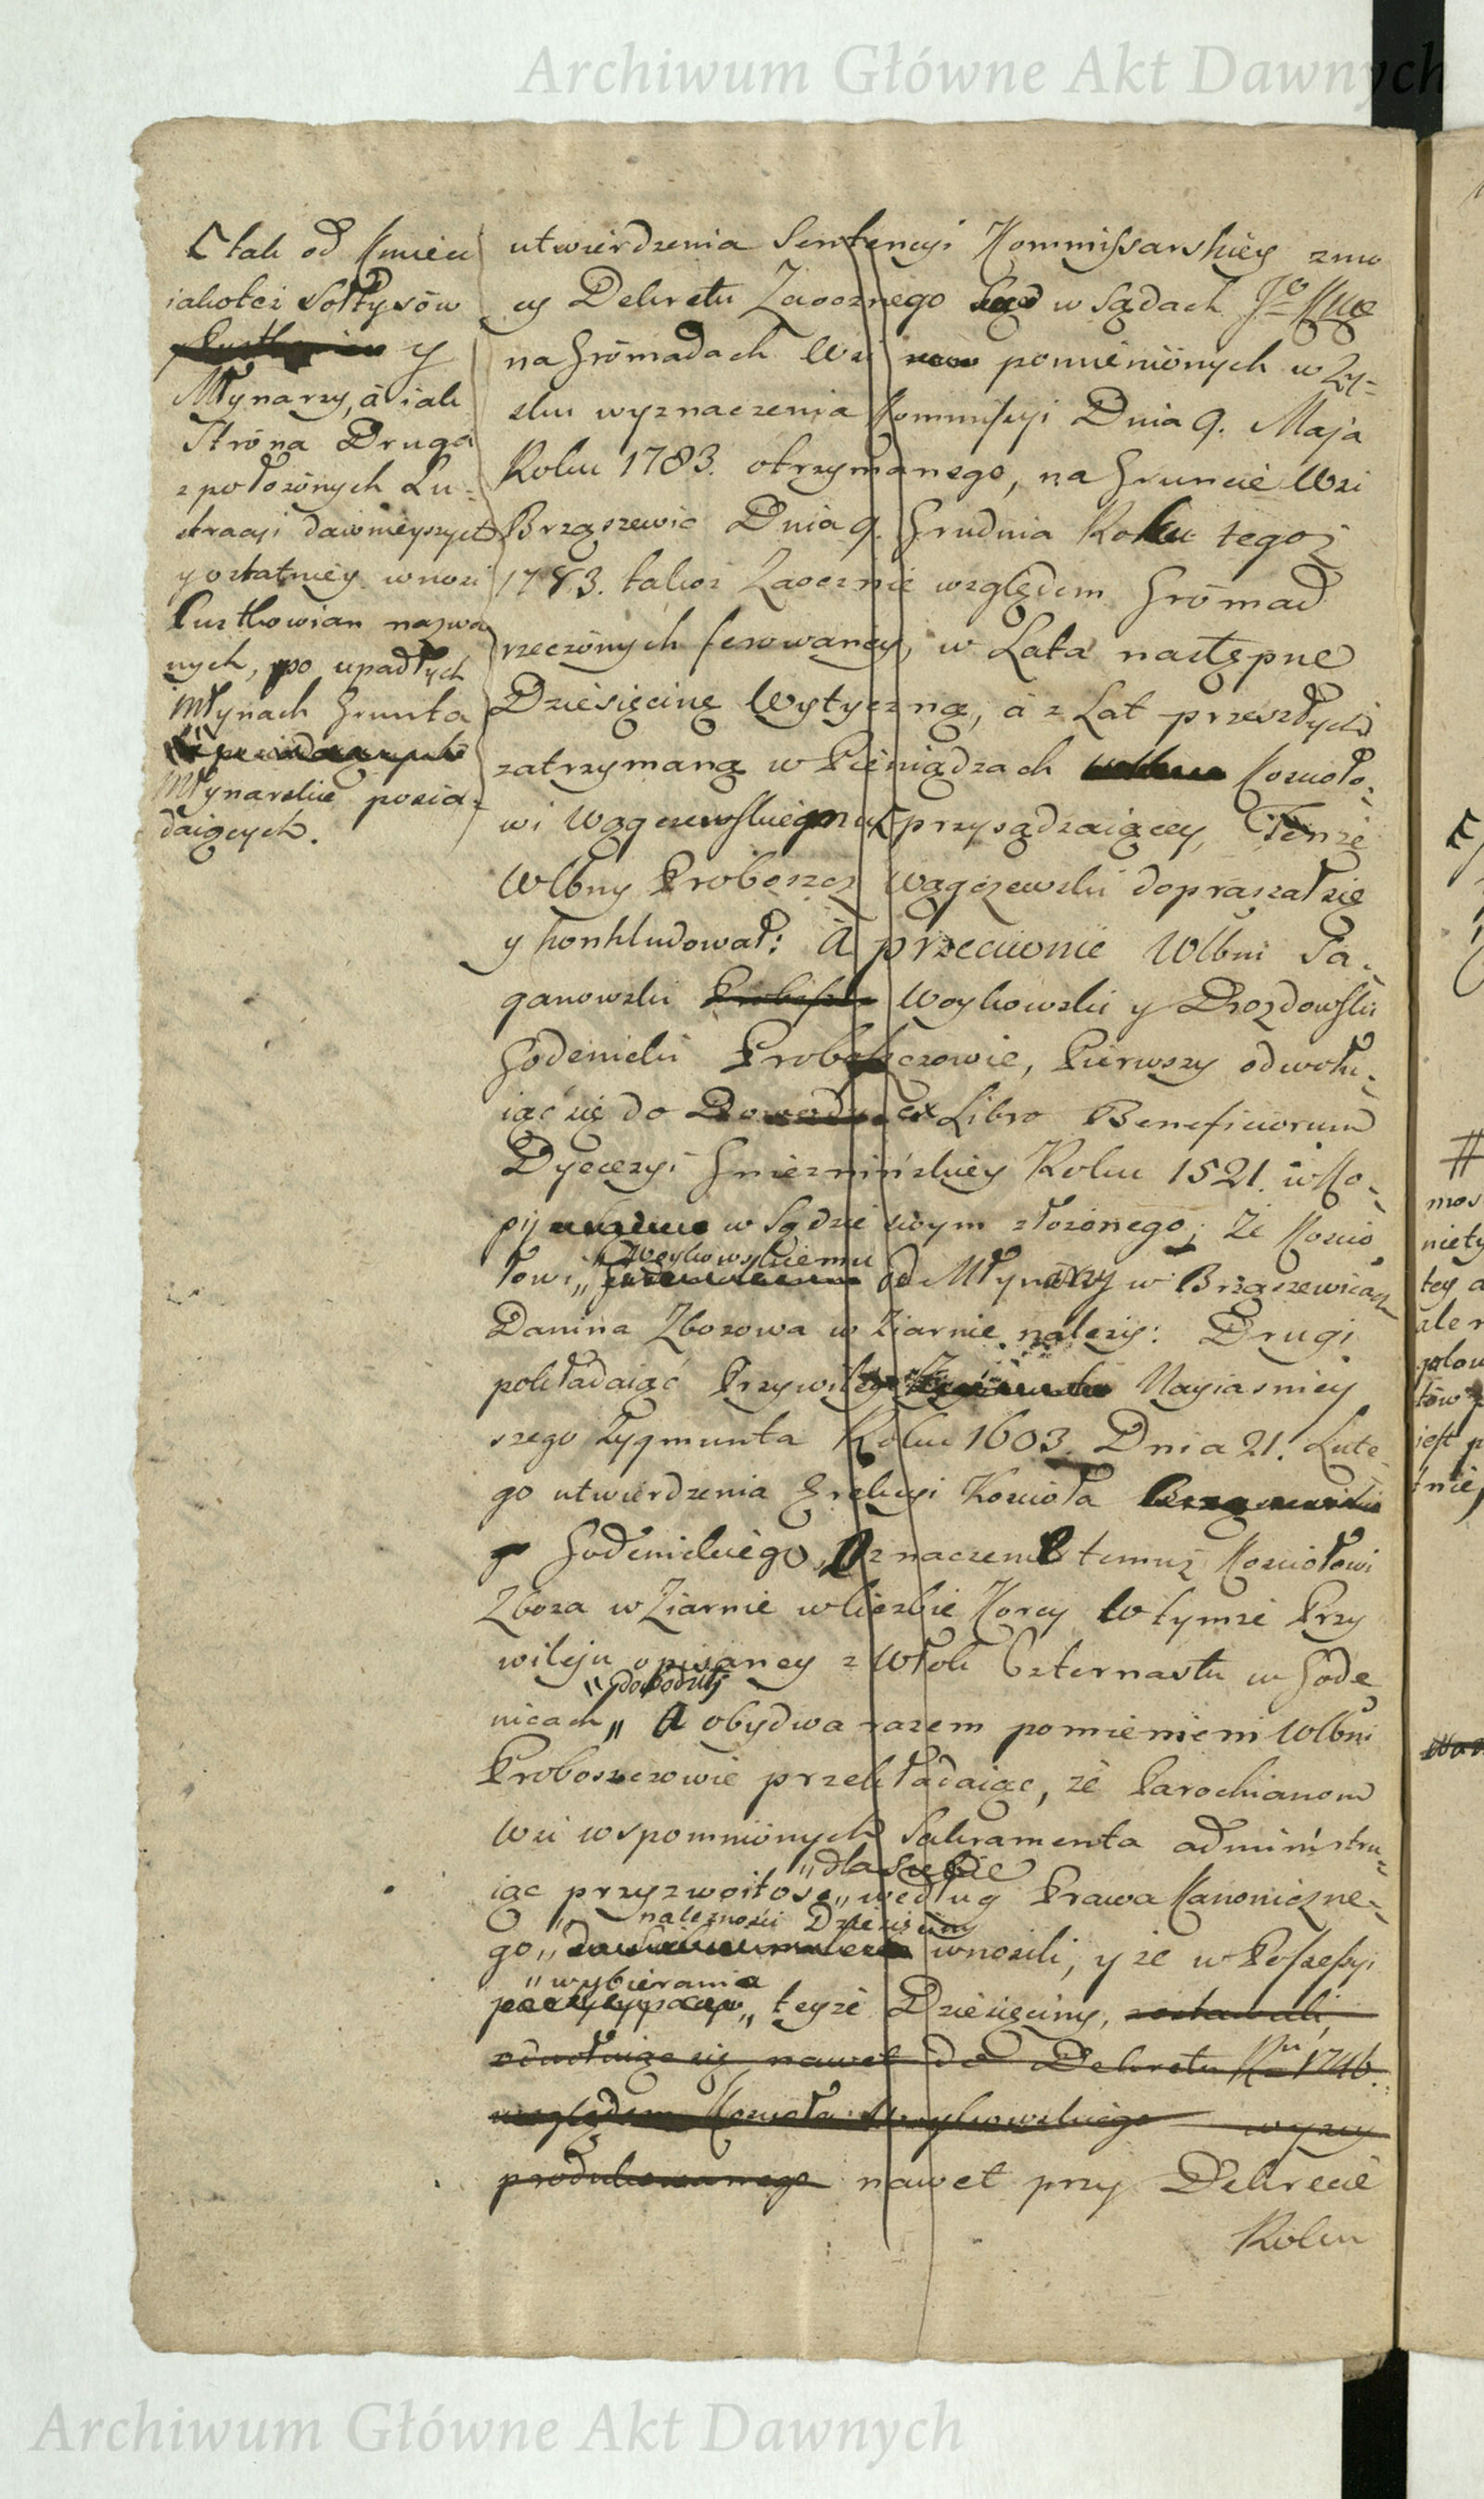 Archiwum Główne Akt Dawnych
tak od Kmieci
iakoteż Sołtysów
y
Młynarzy, á iak
Stróna Druga
z położónych Lu-
stracyi dawnieyszych
y ostatniey wnosi
Pustkowian nazwa
nych, po upadłych
Młynach Grunta
Młynarskie posia-
daiących.
utwierdzenia Sentencyi Kommissarskiey zmo
cy Dekretu Zaocznego w Sądach
na Grómadach Wsi pomieniónych w Zy-
sku wyznaczenia Kommissyi Dnia 9. Maja
Roku 1783. otrzymanego, na Gruncie Wsi
Brząszewic Dnia 9. Grudnia Roku tegoż
1783. takoż Zaocznie względem Grómad
rzeczónych ferowaney, w Lata następne
Dziesięcinę Wytyczną, á z Lat przeszłych
zatrzymaną w Pieniądzach Kościoło-
wi Wągczewskiemu przysądzaiącey, Tenże
Wlbny Proboszcz Wągczewski dopraszał się
y konkludował: A przeciwnie Wlbni Pa-
ganowski Woykowski y Drozdowski
Godenicki Proboszczowie, Pierwszy odwołu-
iąc się do ex Libro Beneficiorum
Dyecezyi Gnieznińskiey Roku 1521. w Ko-
pij w Sądzie swym złożónego; że Kościo
"Woykowskiemu
łowi „ od Młynarzy w Brząszewicach
Danina Zbożowa w Ziarnie należy: Drugi
pokładaiąc Przywiley Nayiasniey
szego Zygmunta Roku 1603. Dnia 21. Lute-
go utwierdzenia Erekcyi Kościoła
Godenickiego, Oznaczenie temuż Kościołowi
Zboża w Ziarnie w liczbie Korcy w tymże Przy
wileju opisaney z Włok Czternastu w Gode
"dowodził
nicach „ A obydwa razem pomienieni Wlbni
Proboszczowie przekładaiąc, że Parochianom
Wsi wspomniónych Sakramenta administru-
"dla Siebie
iąc przyzwoitość „ według Prawa Kanoniczne-
" należności Dziesięciny
go „ wnosili, y że w Possessyi
"wybierania
„ teyże Dziesięciny, zostawali,
odwołuiąc się nawet do Dekretu Rku 1746.
względem Kościoła Woykowskiego wyżey
produkowanego nawet przy Dekrecie
Roku
Archiwum Główne Akt Dawnych